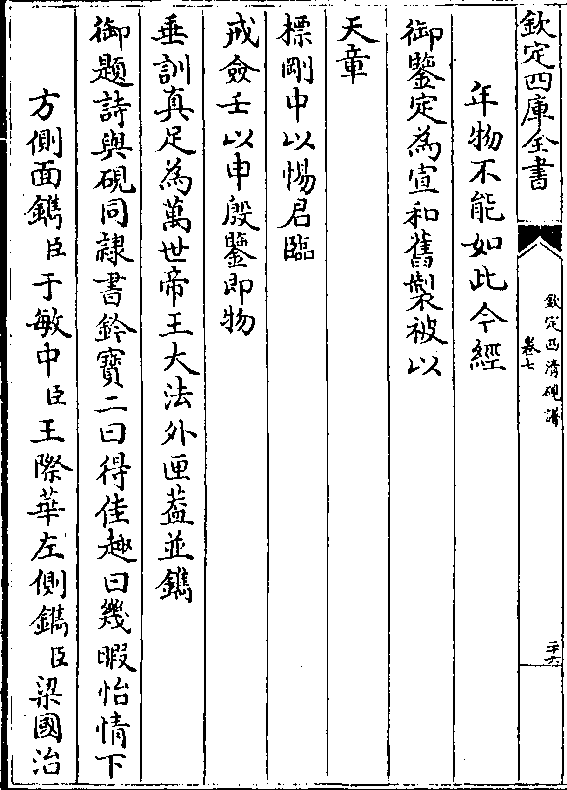 欽定四庫全書
欽定西清硯譜
卷七
二十六
年物不能如此今經
御鑒定為宣和舊製被以
天章
標剛中以惕君臨
戒僉壬以申殷鑒即物
垂訓真足為萬世帝王大法外匣葢並鐫
御題詩與硯同隸書鈐寶二曰得佳趣曰幾暇怡情下
方側面鐫臣于敏中臣王際華左側鐫臣梁國治